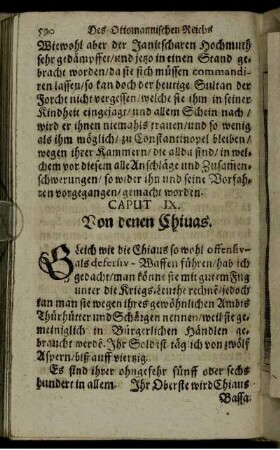 590 Des Ottomannischen Reichs
Wiewohl aber der Janitscharen Hochmuth
sehr gedämpffet/ und jetzo in einen Stand ge-
bracht worden/ da sie sich müssen commandi-
ren lassen/ so kan doch der heutige Sultan der
Forcht nicht vergessen/ welche sie ihm in seiner
Kindheit eingejagt/ und allem Schein nach/
wird er ihnen niemahls trauen/ und so wenig
als ihm möglich/ zu Constantinopel bleiben/
wegen ihrer Kammern/ die allda sind/ in wel-
chem vor diesem alle Anschläge und Zusamen-
schwerungen/ so wider ihn und seine Vorfah-
ren vorgegangen/ gemacht worden.
CAPUT IX.
Von denen Chiuas.
Gleich wie die Chiaus so wohl offensiv-
als defensiv-Waffen führen/ hab ich
gedacht/ man könte sie mit gutem Fug
unter die Kriegs-Leuthe rechnē/ jedoch
kan man sie wegen ihres gewöhnlichen Ambts
Thürhütter und Schärgen nennen/ weil sie ge-
meiniglich in Bürgerlichen Händlen ge-
braucht werdē. Ihr Sold ist täglich von zwölf
Aspern/ biß auff viertzig.
Es sind ihrer ohngefehr fünff oder sechs
hundert in allem. Ihr Oberste wird Chiaus
Bassa